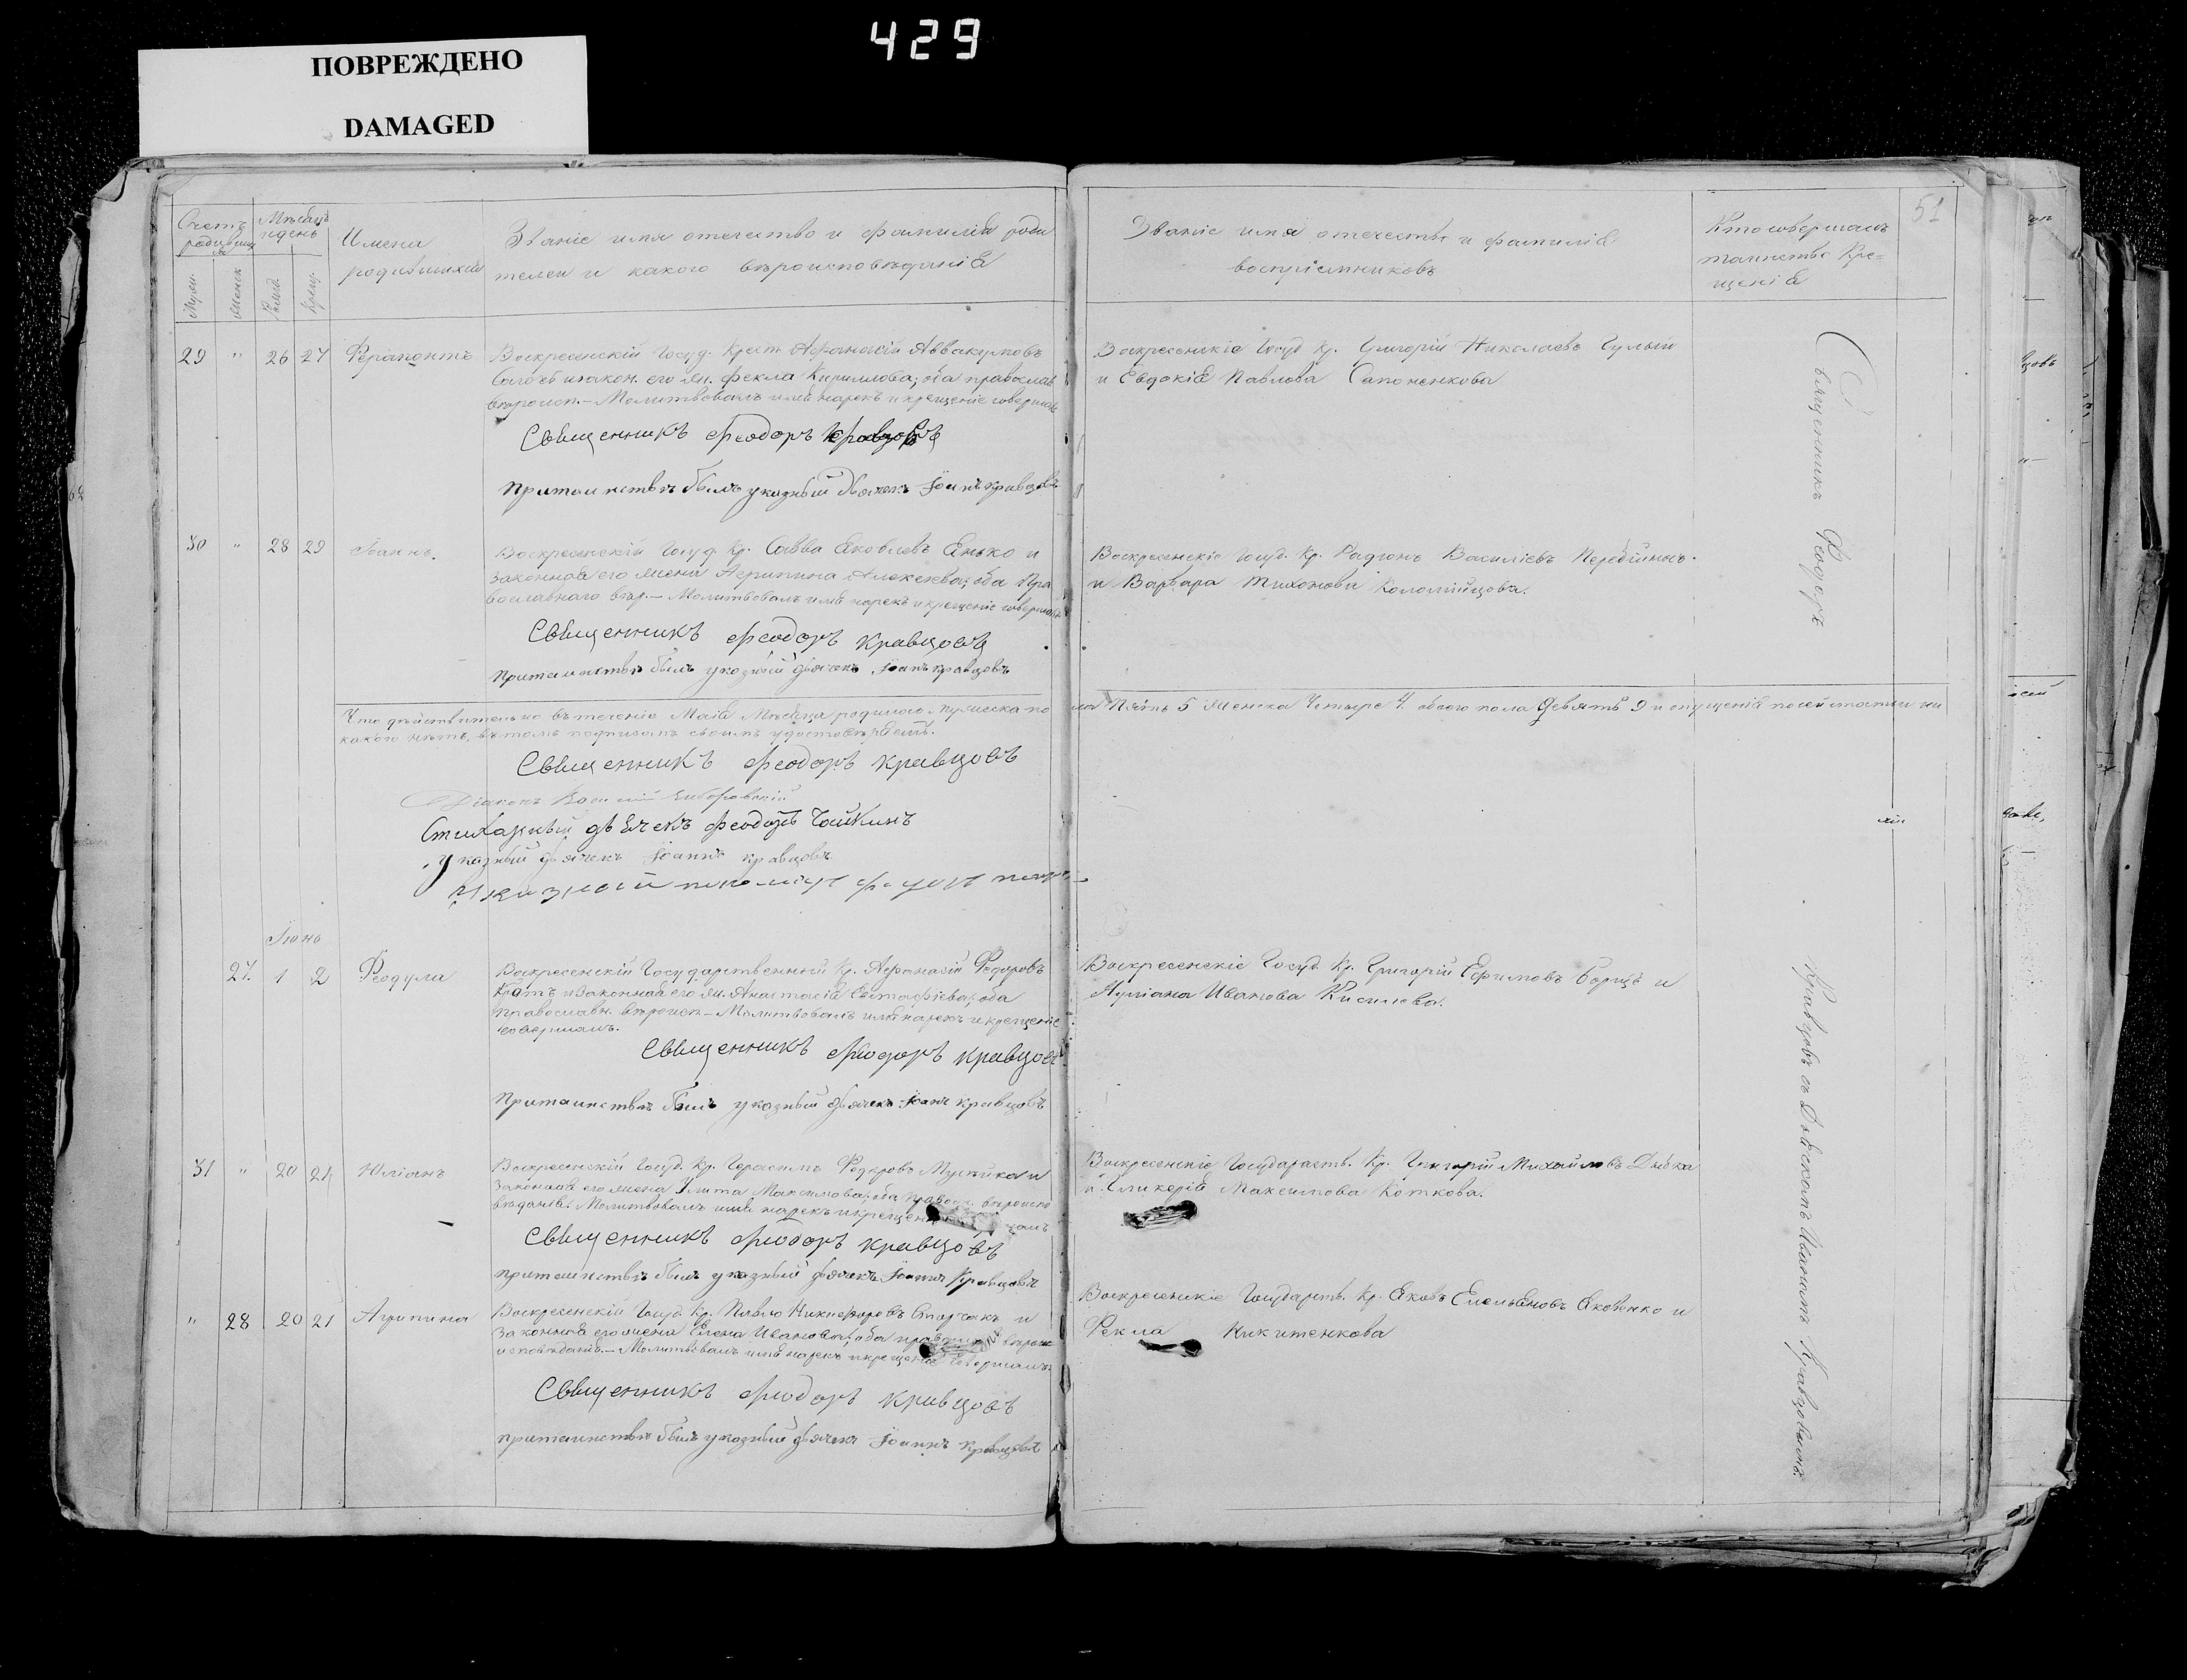 429
ПОВРЕЖДЕНО
DAMAGED
51
Счетъ родившихся
Мѣсяцъ и день
Муж.
Женск.
Рожд.
Крещ.
Имена
родившихся
Званіе имя отечество и фамилія роди
телей и какого вѣроисповѣданія
Званіе имя отечество и фамилія
воспріемниковъ
Кто совершалъ
таинство Кре=
щенія
29 " 26 27 Ферапонтъ
Воскресенскій Госуд. Крест. Афанасій Аввакумовъ
и закон. его ж. Фекла Кириллова; оба православ
вѣроисп.– Молитвовалъ имя нарекъ и крещеніе совершалъ
Священникъ Феодоръ Кравцовъ
При таинствѣ былъ указный дьячекъ Іоаннъ Кравцовъ
Воскресенскіе Госуд. Кр. Григорій Николаевъ Гулый
и Евдокія Павлова Сапоненкова
30 " 28 29 Іоаннъ.
Воскресенскій Госуд. Кр. Савва Яковлевъ Енько и
законная его жена Агрипина Алексѣева; оба Пра
вославнаго вѣр.– Молитвовалъ имя нарекъ и крещеніе совершалъ
Священникъ Феодоръ Кравцовъ
При таинствѣ былъ указный дьячекъ Іоаннъ Кравцовъ
Воскресенскіе Госуд. Кр. Радіонъ Василіевъ Перебійносъ
и Варвара Тихонова Коломійцова.
Что дѣйствительно въ теченіе Маія Мѣсяца родилось мужеска по
ла Пять 5 женска Четыре 4. обоего пола Девять 9 и опущенія по сей статьи ни
какого нѣтъ, въ томъ подписомъ своимъ удостовѣряемъ.
Священникъ Феодоръ Кравцовъ
Діаконъ Василій
Стихарный дьячекъ Феодоръ Чайкинъ
Указный дьячекъ Іоаннъ Кравцовъ
Указной пономарь
Іюнь
27. 1 2 Феодула
Воскресенскій Государственный Кр. Афанасій Федоровъ
и законная его ж. Анастасія Евстафіева; оба
православн. вѣроисп.– Молитвовалъ имя нарекъ и крещеніе
совершалъ.
Священникъ Феодоръ Кравцовъ
При таинствѣ былъ указный дьячекъ Іоаннъ Кравцовъ
Воскресенскіе Госуд. Кр. Григорій Ефимовъ Борищъ и
Иванова Кисилева.
31 " 20 21 Юліанъ
Воскресенскій Госуд. Кр. Герасимъ Федоровъ и
законная его жена Улита Максимова; оба Правосл. вѣроиспо
вѣданія. Молитвовалъ имя нарекъ и крещен
Священникъ Феодоръ Кравцовъ
при таинствѣ былъ указный дьячекъ Іоаннъ Кравцовъ
Воскресенскіе Государств. Кр. Григорій Михайловъ и
Гликерія Максимова Коткова.
" 28 20 21 Агрипина
Воскресенскій Госуд. Кр. Павло Никифоровъ и
законная его жена Елена Иванова; оба
исповѣданія.– Молитвовалъ имя нарекъ и крещеніе совершалъ.
Священникъ Феодоръ Кравцовъ
при таинствѣ былъ указный дьячекъ Іоаннъ Кравцовъ
Воскресенскіе Государств. Кр. Яковъ Емельяновъ Яковенко и
Фекла Никитенкова
Священникъ Феодоръ
Кравцовъ съ Дьячкомъ Иваномъ Кравцовымъ.